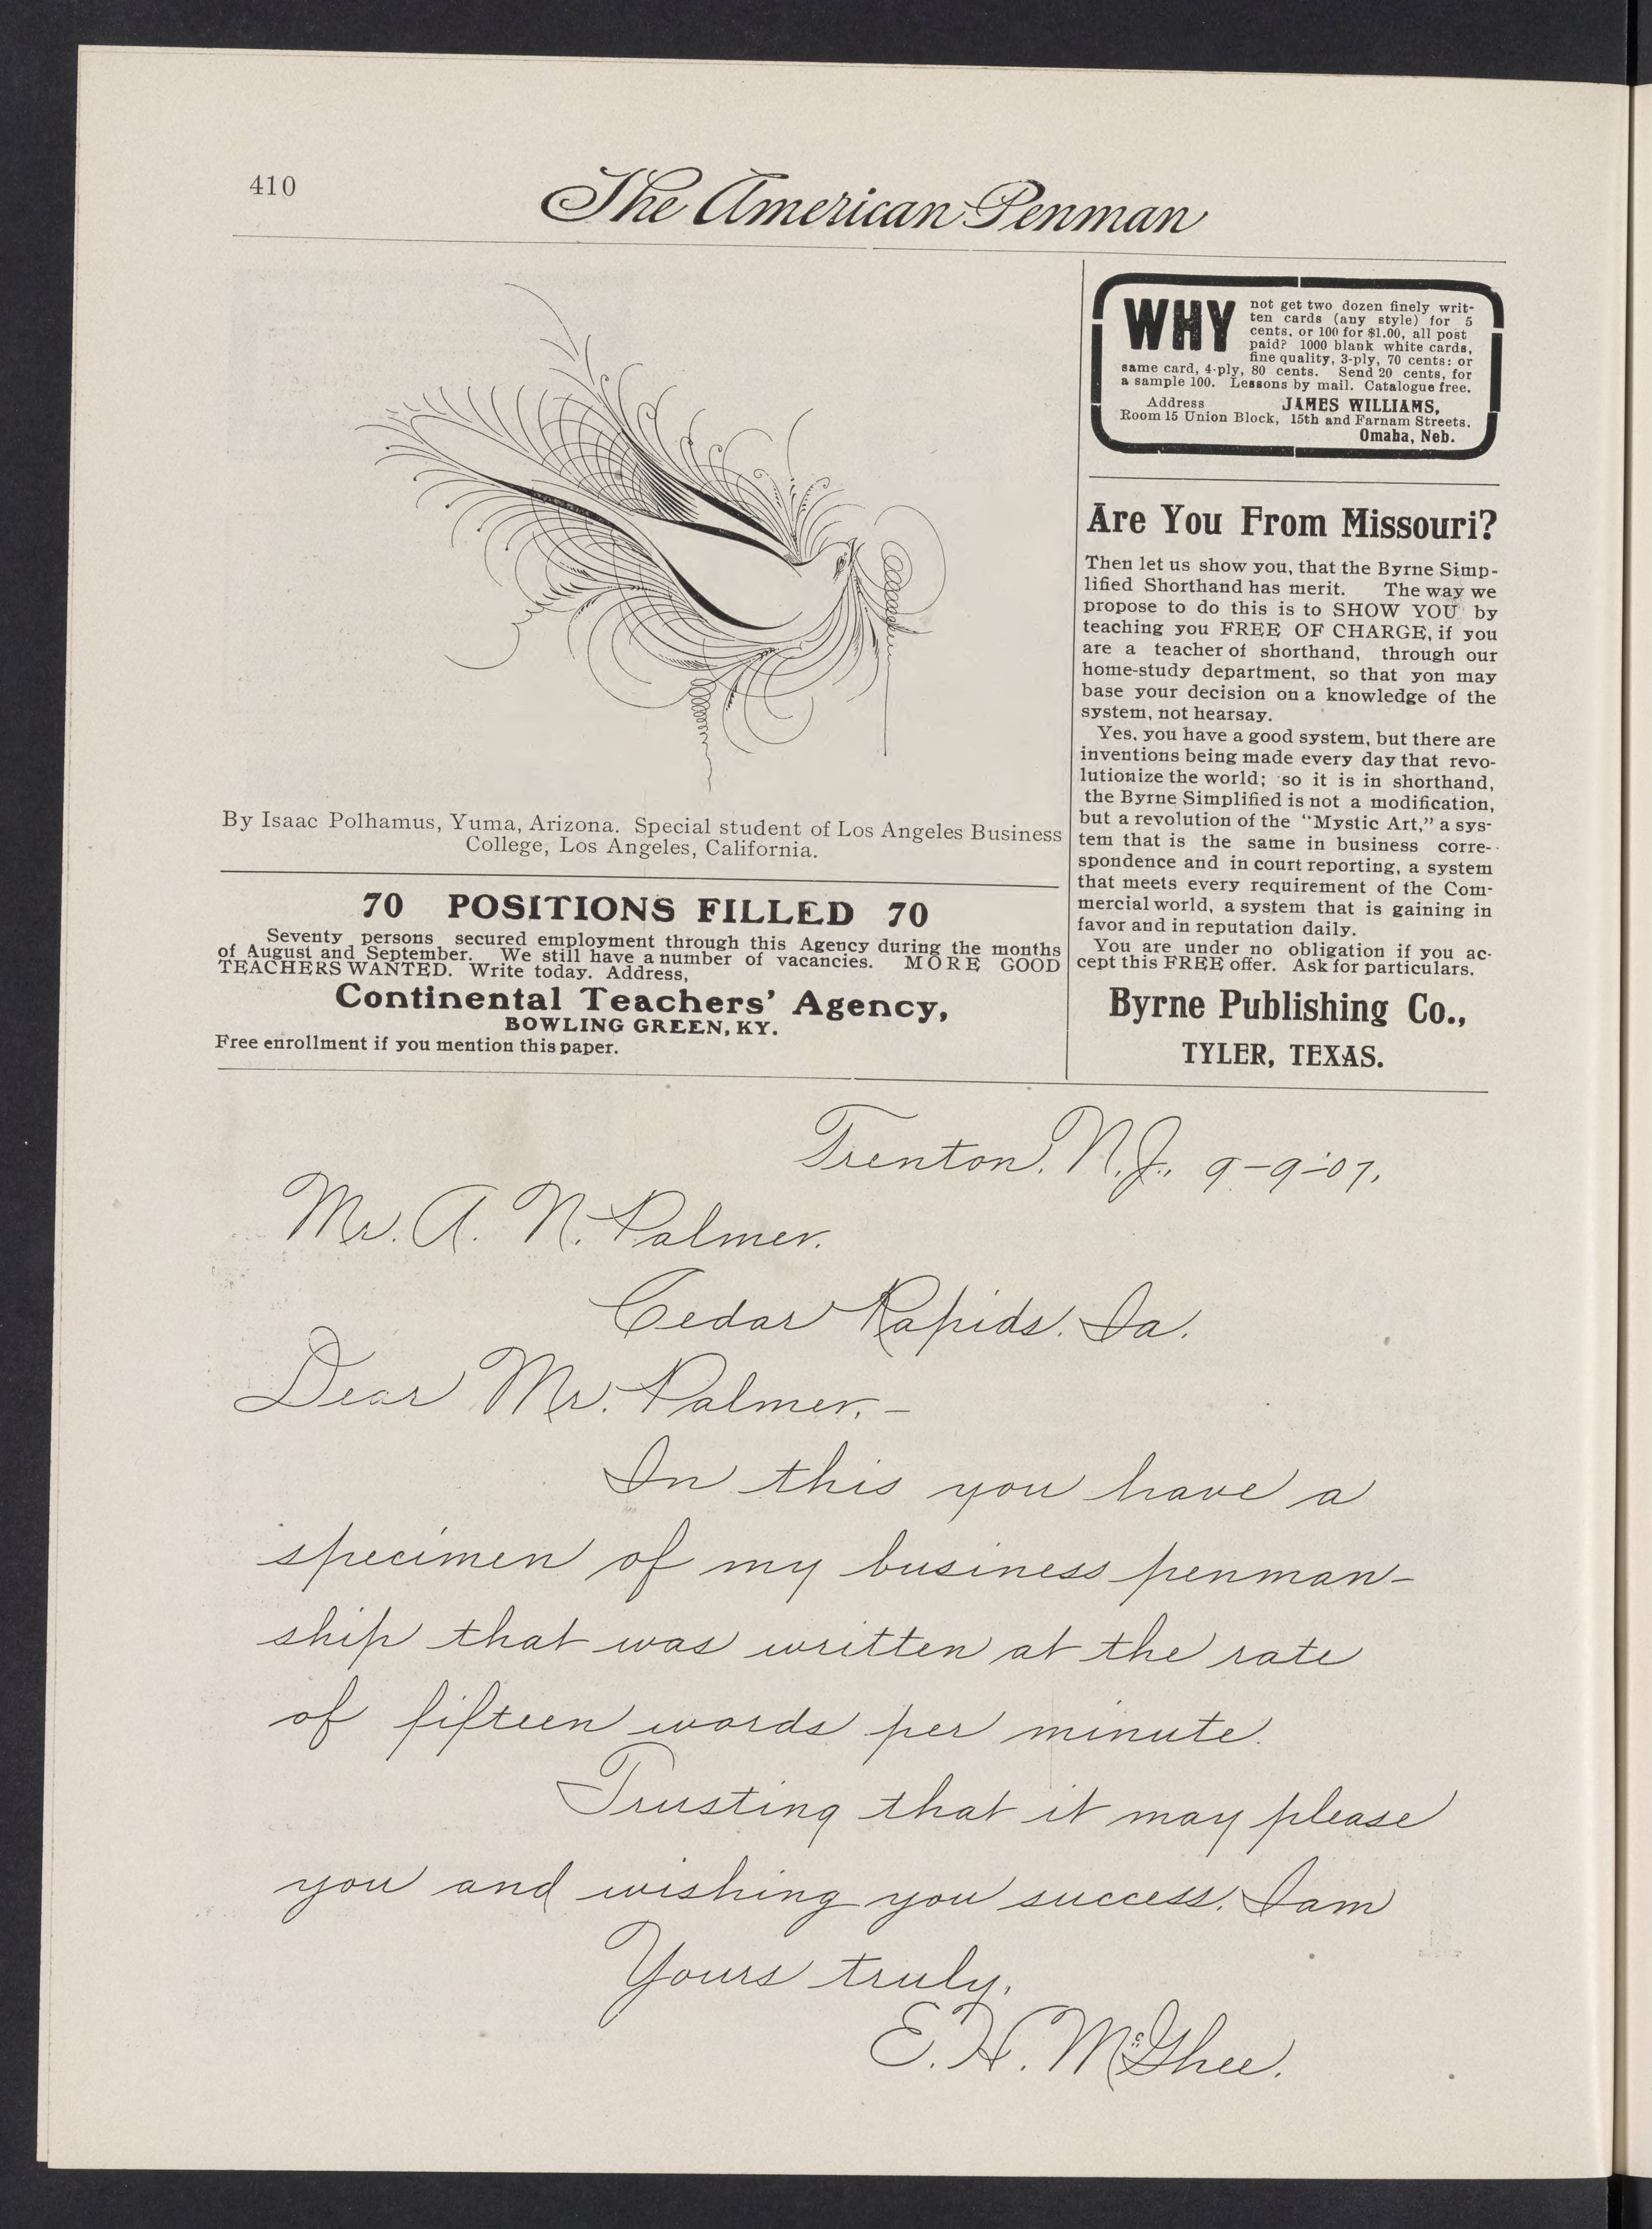 410
The American Penman
By Isaac Polhamus, Yuma, Arizona. Special student of Los Angeles Business
College, Los Angeles, California.
70 POSITIONS FILLED 70
Seventy persons secured employment through this Agency during the months
of August and September. We still have a number of vacancies. MORE GOOD
TEACHERS WANTED. Write today. Address,
Continental Teachers' Agency,
BOWLING GREEN, KY.
Free enrollment if you mention this paper.
WHY not get two dozen finely writ-
ten cards (any style) for 5
cents, or 100 for $1.00, all post
paid? 1000 blank white cards,
fine quality, 3-ply, 70 cents: or
same card, 4-ply, 80 cents. Send 20 cents, for
a sample 100. Lessons by mail. Catalogue free.
Address JAMES WILLIAMS,
Room 15 Union Block, 15th and Farnam Streets.
Omaha, Neb.
Are You From Missouri?
Then let us show you, that the Byrne Simp-
lified Shorthand has merit. The way we
propose to do this is to SHOW YOU by
teaching you FREE OF CHARGE, if you
are a teacher of shorthand, through our
home-study department, so that yon may
base your decision on a knowledge of the
system, not hearsay.
Yes, you have a good system, but there are
inventions being made every day that revo-
lutionize the world; so it is in shorthand,
the Byrne Simplified is not a modification,
but a revolution of the "Mystic Art," a sys-
tem that is the same in business corre-
spondence and in court reporting, a system
that meets every requirement of the Com-
mercial world, a system that is gaining in
favor and in reputation daily.
You are under no obligation if you ac-
cept this FREE offer. Ask for particulars.
Byrne Publishing Co.,
TYLER, TEXAS.
Trenton, N.J., 9-9-'07,
Mr. A. N. Palmer,
Cedar Rapids, Ia.
Dear Mr. Palmer,-
In this you have a
specimen of my business penman-
ship that was written at the rate
of fifteen words per minute.
Trusting that it may please
you and wishing you success, I am
Yours truly,
E. H. McGhee.